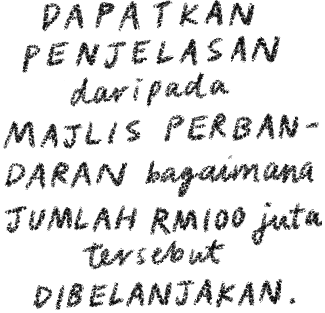 DAPATKAN
PENJELASAN
daripada
MAJLIS PERBAN-
DARAN bagaimana
JUMLAH RM100 juta
tersebut
DIBELANJAKAN.